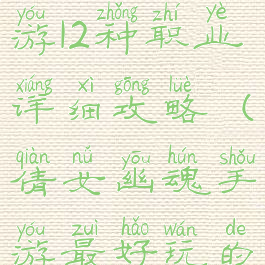 yóu zhǒng zhí yè
游12种职业
xiáng xì gōng lüè
详细攻略（
qiàn nǚ yōu hún shǒu
倩女幽魂手
yóu zuì hǎo wán de
游最好玩的